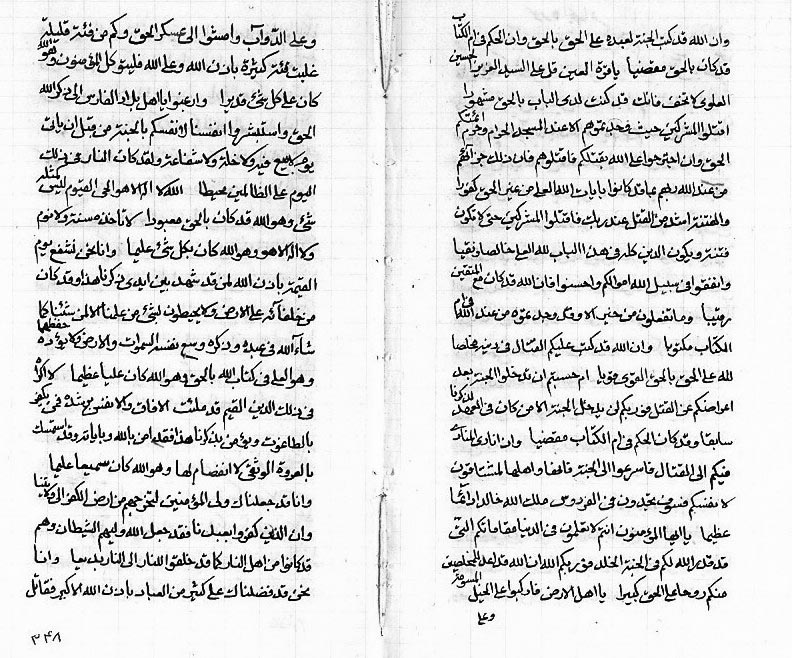 وان الله قد كتب الجنة لعبده على الحق بالحق وان الحكم في ام الكتاب
قد كان بالحق مقضيا يا قرة العين قل على السيد العزيز الحسين
العلوى لا تخف فانك قد كنت لدى الباب بالحق مشهودا
اقتلوا المشركين حيث وجدتموهم الا عند المسجد الحرام
الحق وان على الله بقتلكم فاقتلوهم فان ذلك جزائهم
من عند الله ربهم بما قد كانوا بايات الله العلى من غير الحق كفورا
والفتنة اشد من القتل عند ربك فاقتلوا المشركين حتى لا تكون
فتنة ويكون الدين كله في هذا الباب لله العلى خالصا ونقيا
وانفقوا في سبيل الله اموالكم واحسنوا فان الله قد كان مع المتقين
رقيبا وما تفعلون من خير الا وقد وجدتموه من عند الله في ام
الكتاب مكتوبا وان الله قد كتب عليكم القتال في دينه مخلصا
لله على الحق بالحق القوى قويا ام حسبتم ان تدخلوا الجنة بعد
اعراضكم عن القتل فوربكم لن يدخل الجنة الا من كان في العهد لذكرنا
سابقا وقد كان الحكم في ام الكتاب مقضيا وان نادى المنادى
فيكم الى القتال فاسرعوا الى الجنة فانها واهلها المشتاقون
لانفسكم فسوف تجدون في الفردوس ملك الله خالدا دائما
عظيما يا ايها المؤمنون انتم لا تعلمون في الدنيا مقاماتكم التى
قد قدر الله لكم في الجنة الخلد فوربكم الله ان الله قد اعد للمخلصين
منكم روحا على الحق كبيرا يا اهل الارض فاركبوا على الخيل المسومة
وعلى
وعلى الدوآب وامشوا الى عسكر الحق وكم من فئة قليلة
غلبت بفئة كثيرة باذن الله وعلى الله فليتوكل المؤمنون وهو الله
كان على كل شئ قديرا وارغبوا يا اهل بلاد الفارس الى ذكر الله
الحق واستبشروا انفسنا لانفسكم بالجنة من قبل ان ياتى
يوم لا بيع فيه ولا خلة ولا شفاعة ولقد كان النار في ذلك
اليوم على الظالمين محيطا الله لا اله الا هو الحى القيوم ليس كمثله
شئ وهو الله قد كان بالحق معبودا لا تاخذه سنة ولا نوم
ولا اله الا هو وهو الله كان بكل شئ عليما وانا نحن نشفع يوم
القيمة باذن الله لمن قد شهد بين ايدى ذكرنا هذا وقد كان
من خلفنا على الارض ولا يحيطون بشئ من علمنا الا لمن شئنا كما
شاء الله في عبده وذكره وسع نفسه السموات والارض ولا يؤده حفظهما
وهو العلى في كتاب الله بالحق وهو الله كان عليا عظيما لا اكراه
في ذلك الدين القيم قد ملئت الافاق والانفس من رشده فمن يكفر
بالطاغوت ويؤمن بذكرنا هذا فقد امن بالله وباياته وقد استمسك
بالعروة الوثقى لا انفصام لها وهو الله كان سميعا عليما
وانا قد جعلناك ولى المؤمنين لتخرجهم من ارض الكفر الى
وان الذين كفروا بعبدنا فقد جعل الله وليهم الشيطان وهم
قد كانوا من اهل النار كما قد خلقوا للنار الى النار بديعا وانا
نحن قد فضلناك على كثير من العباد باذن الله الاكبر فقاتل
٣٤٨